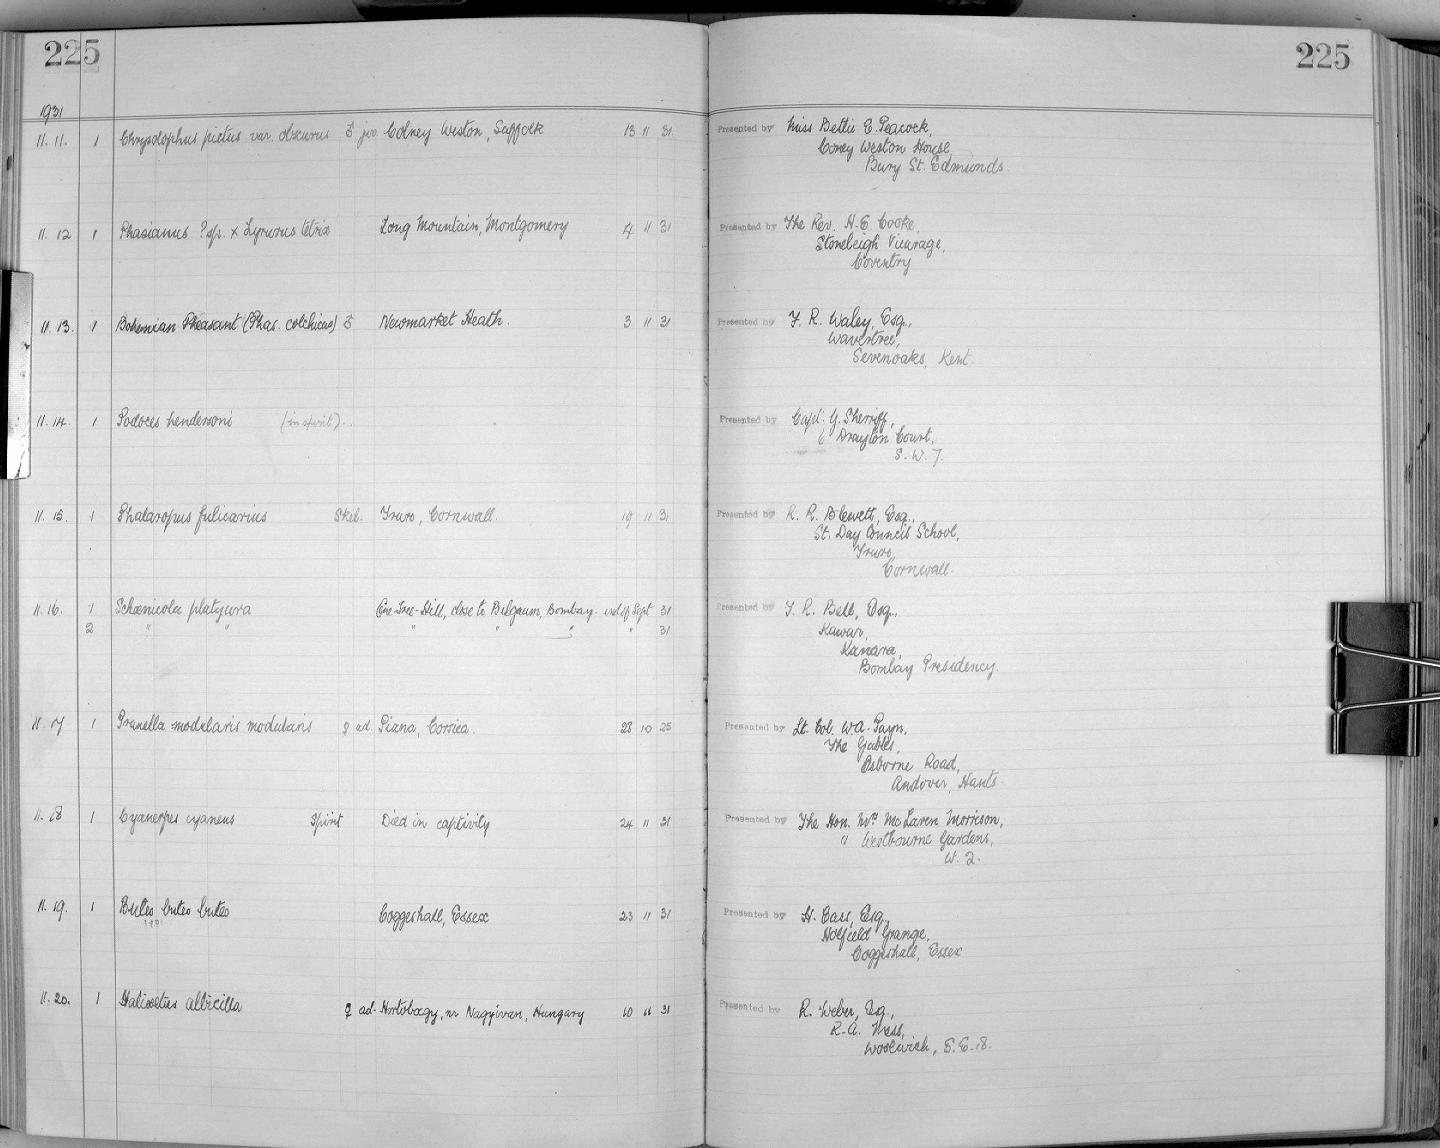 225 225
1931
11. 11. 1 Chrysolophus pictus var. obscurus ♂ juv. Coney Weston, Suffolk 13 11 31 Presented by Miss Bettie E. Peacock,
Coney Weston House,
Bury St. Edmunds.
11. 12 1 Phasianus ? sp. x Lyrurus tetrix Long Mountain, Montgomery 4 11 31 Presented by The Rev. H. E. Cooke,
Stoneleigh Vicarage,
Coventry
11. 13. 1 Bohemian Pheasant (Phas. colchicus) ♂ Newmarket Heath. 3 11 31 Presented by F. R. Waley, Esq.,
Wavertree,
Sevenoaks, Kent.
11. 14. 1 Podoces hendersoni (in spirit). Presented by Capt. G. Sherriff,
6 Drayton Court,
S. W. 7.
11. 15. 1 Phalaropus fulicarius Skel. Truro, Cornwall. 19 11 31 Presented by R. R. Blewett, Esq.,
St. Day Council School,
Truro,
Cornwall.
11. 16. 1 Schœnicola platyura Hill, close to Belgaum, Bombay. Sept 31 Presented by T. R. Bell, Esq.,
2 " " " " " " 31 Karwar,
Kanara,
Bombay Presidency.
11. 17 1 Prunella modularis modularis ♀ ad. Piana, Corsica. 28 10 25 Presented by Lt. Col. W. A. Payn,
The Gables,
Osborne Road,
Andover, Hants.
11. 18 1 Cyanerpes cyaneus Spirit Died in captivity 24 11 31 Presented by The Hon. Mrs McLaren Morrison,
11 Westbourne Gardens,
W. 2.
11. 19. 1 Buteo buteo buteo Coggeshall, Essex 23 11 31 Presented by H. Carr, Esq.,
Holfield Grange,
Coggeshall, Essex
11. 20. 1 Haliaetus albicilla ♀ ad. Hortobagy, nr Nagyivan, Hungary 10 11 31 Presented by R. Weber, Esq.,
R. A. Mess,
Woolwich, S. E. 18.